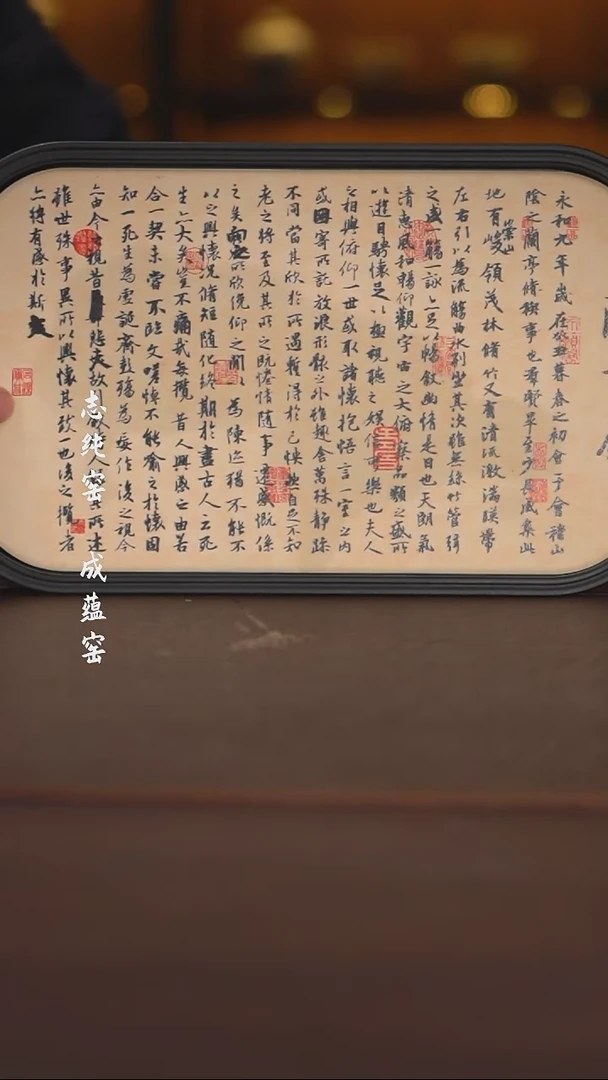 永和九年歲在癸丑暮春之初會于會稽山
陰之蘭亭脩稧事也羣賢畢至少長咸集此
地有崇山峻領茂林脩竹又有清流激湍暎帶
左右引以為流觴曲水列坐其次雖無絲竹管弦
之盛一觴一詠亦足以暢敘幽情是日也天朗氣
清惠風和暢仰觀宇宙之大俯察品類之盛所
以遊目騁懷足以極視聽之娛信可樂也夫人
之相與俯仰一世或取諸懷抱悟言一室之內
或因寄所託放浪形骸之外雖趣舍萬殊靜躁
不同當其欣於所遇蹔得於己怏然自足不知
老之將至及其所之既惓情隨事遷感慨係
之矣向之所欣俛仰之間以為陳迹猶不能不
以之興懷況脩短隨化終期於盡古人云死
生亦大矣豈不痛哉每攬昔人興感之由若
合一契未嘗不臨文嗟悼不能喻之於懷固
知一死生為虛誕齊彭殤為妄作後之視今
亦由今視昔悲夫故人所述
雖世殊事異所以興懷其致一也後之攬者
亦將有感於斯文
志纯窑
成蕴窑